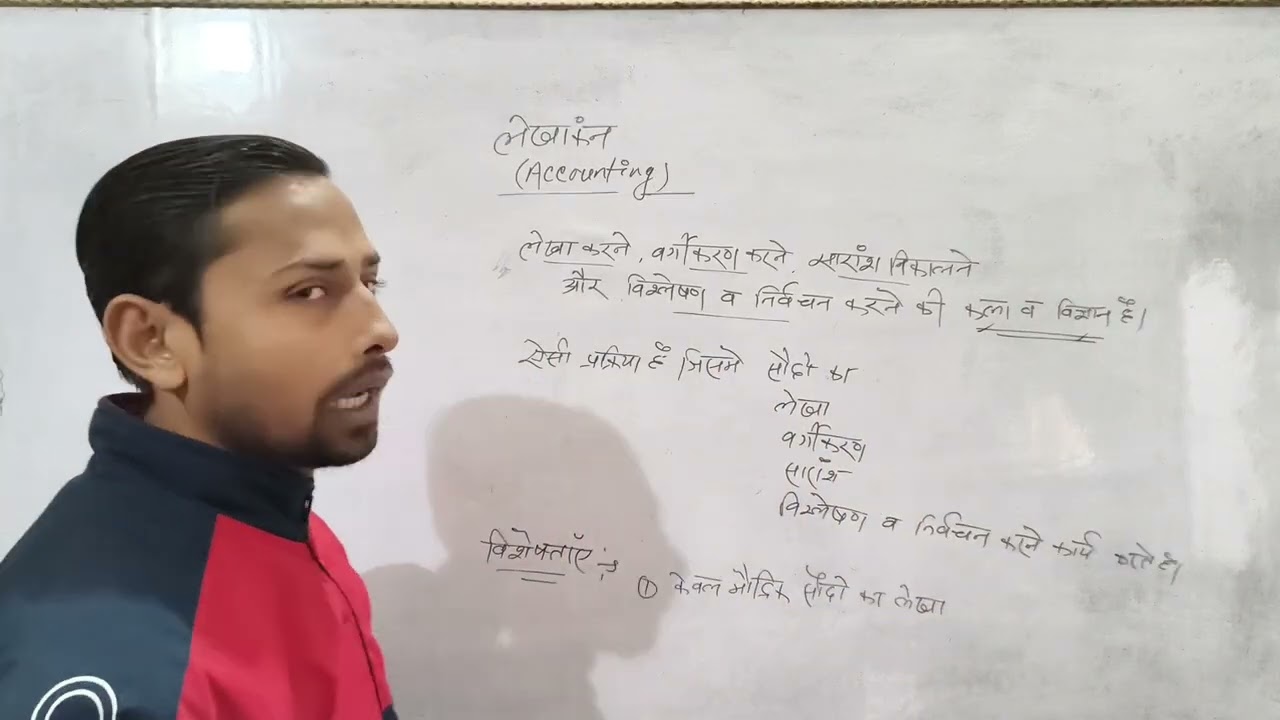 लेखाकंन
(Accounting)
लेखा करने, वर्गीकरण करने, सारांश निकालने
और विश्लेषण व निर्वचन करने की कला व विज्ञान है।
ऐसी प्रक्रिया है जिसमे सौदो का
लेखा
वर्गीकरण
सारांश
विश्लेषण व निर्वचन करने कार्य करते है।
विशेषताएँ :→
① केवल मौद्रिक सौदो का लेखा